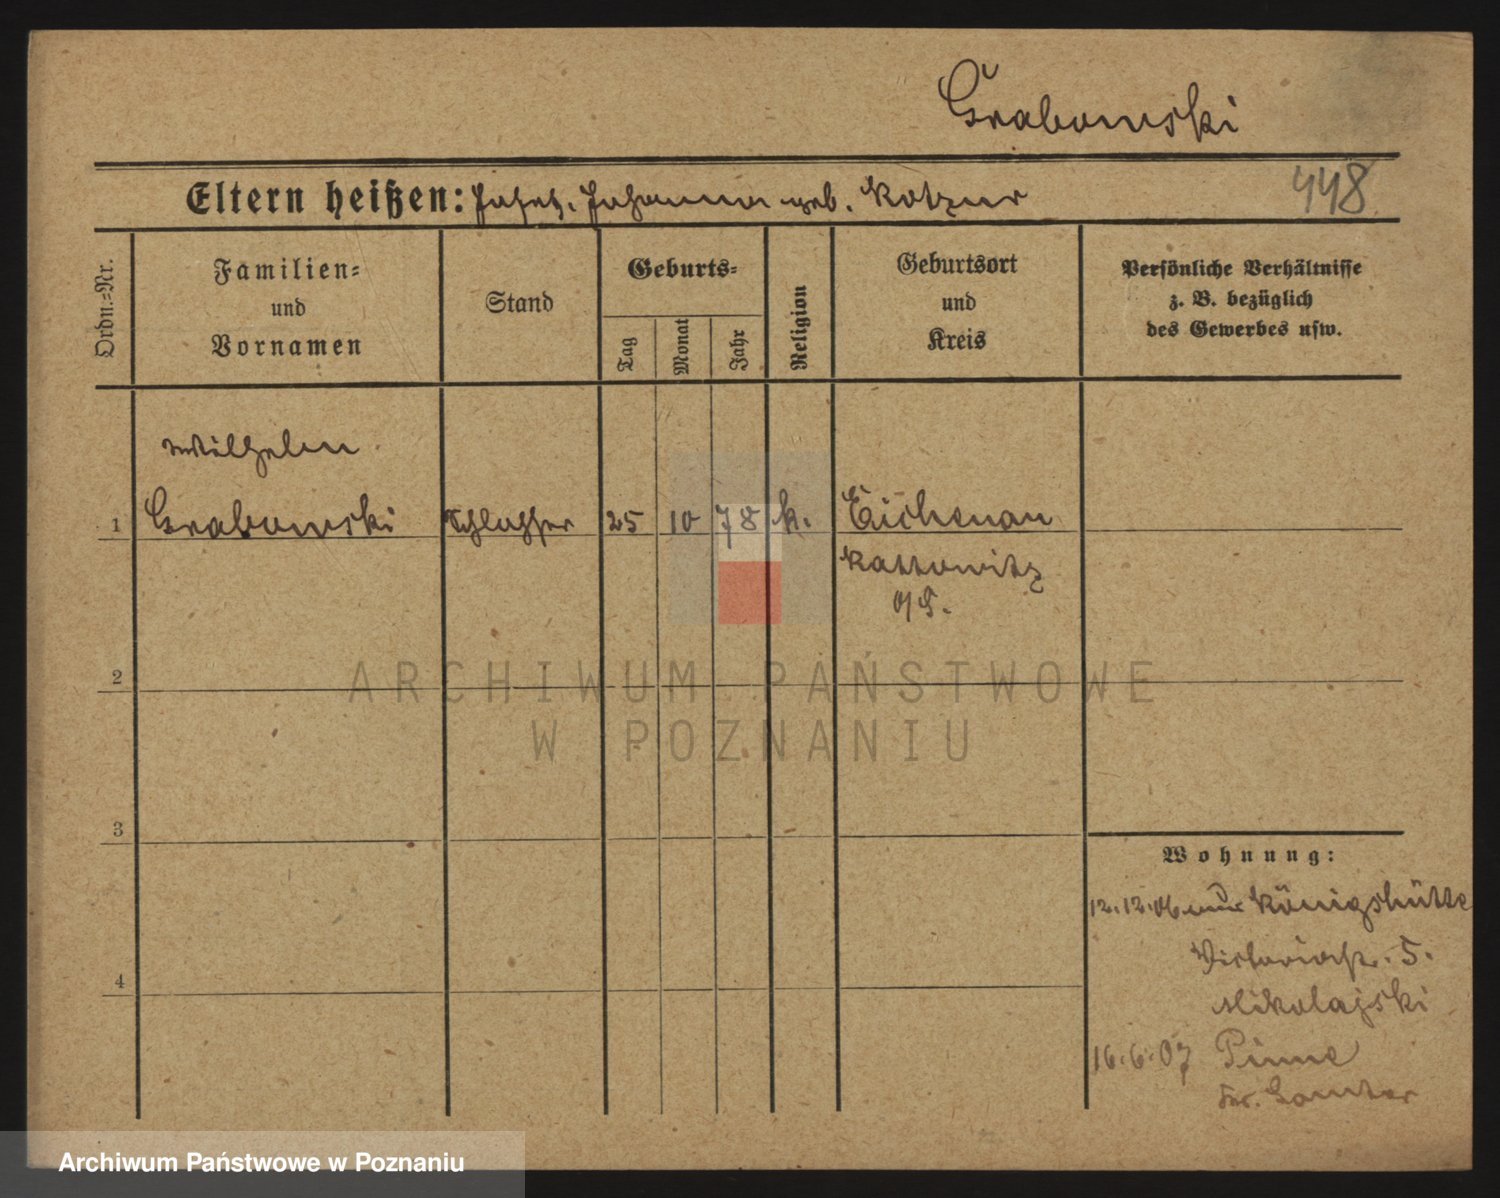 Grabowski
Eltern heißen: Josef, Johanna geb. Kotzur
448
Ordn.-Nr.
Familien-
und
Vornamen
Stand
Geburts-
Tag
Monat
Jahr
Religion
Geburtsort
und
Kreis
Persönliche Verhältnisse
z. B. bezüglich
des Gewerbes usw.
Wilhelm
1 Grabowski Schlosser 25 10 78 k. Eichenau
Kattowitz
O/S.
2
ARCHIWUM PAŃSTWOWE
W POZNANIU
3
Wohnung:
12.12.06 Königshütte
Victoriastr. 5.
4
Mikolajski
16.6.07 Pinne
Kr. Samter
Archiwum Państwowe w Poznaniu